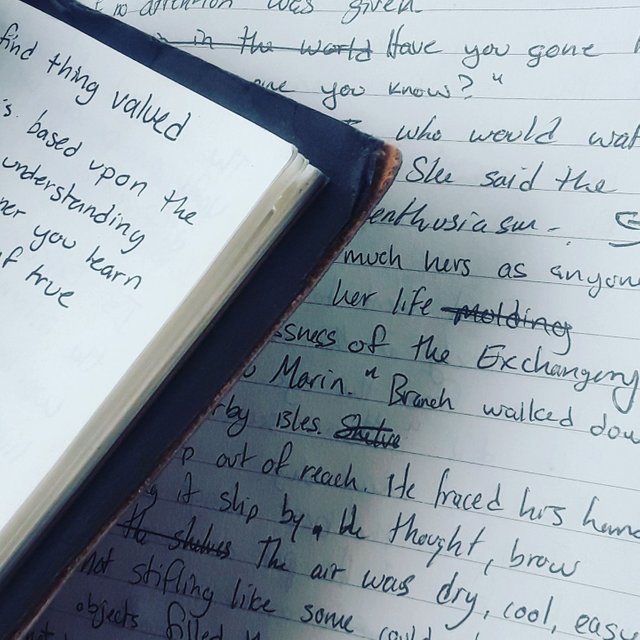 find thing valued
based upon the
understanding
you learn
of true
attention was given
in the world Have you gone
you know?"
who would
She said the
enthusiasm.
much hers as
her life molding
of the Exchangery
Marin." Branch walked
Isles.
out of reach. He traced his
it slip by. He thought, brow
the shelves The air was dry, cool,
not stifling like some
objects filled